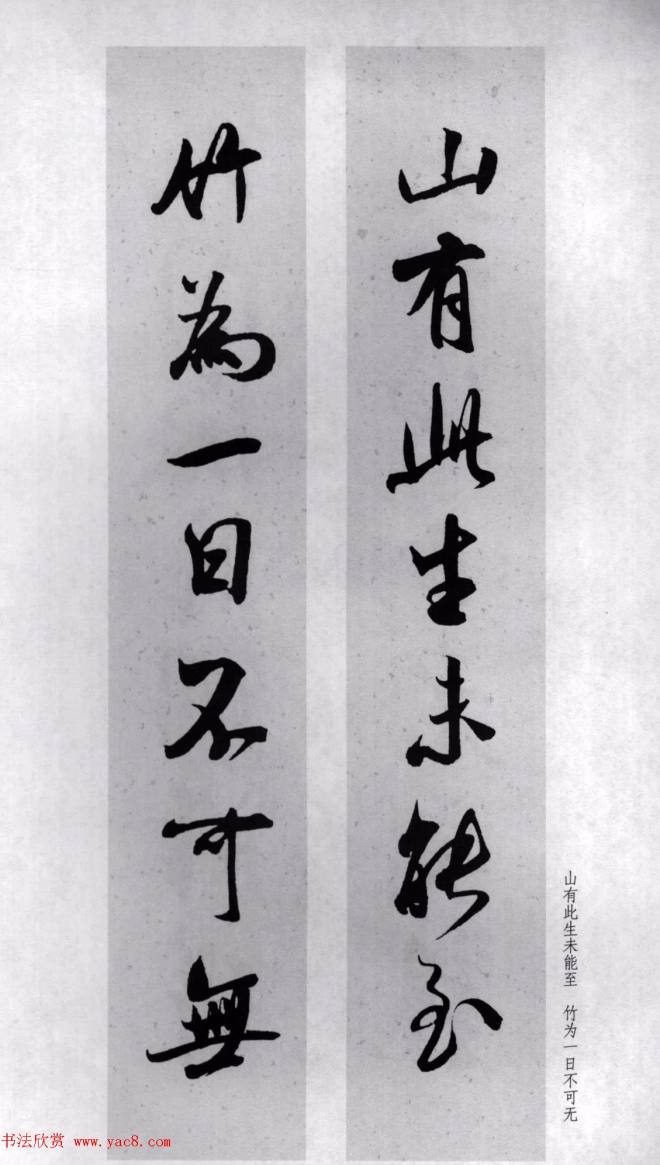 山有此生未能至
竹為一日不可無
山有此生未能至 竹为一日不可无
书法欣赏 www.yac8.com